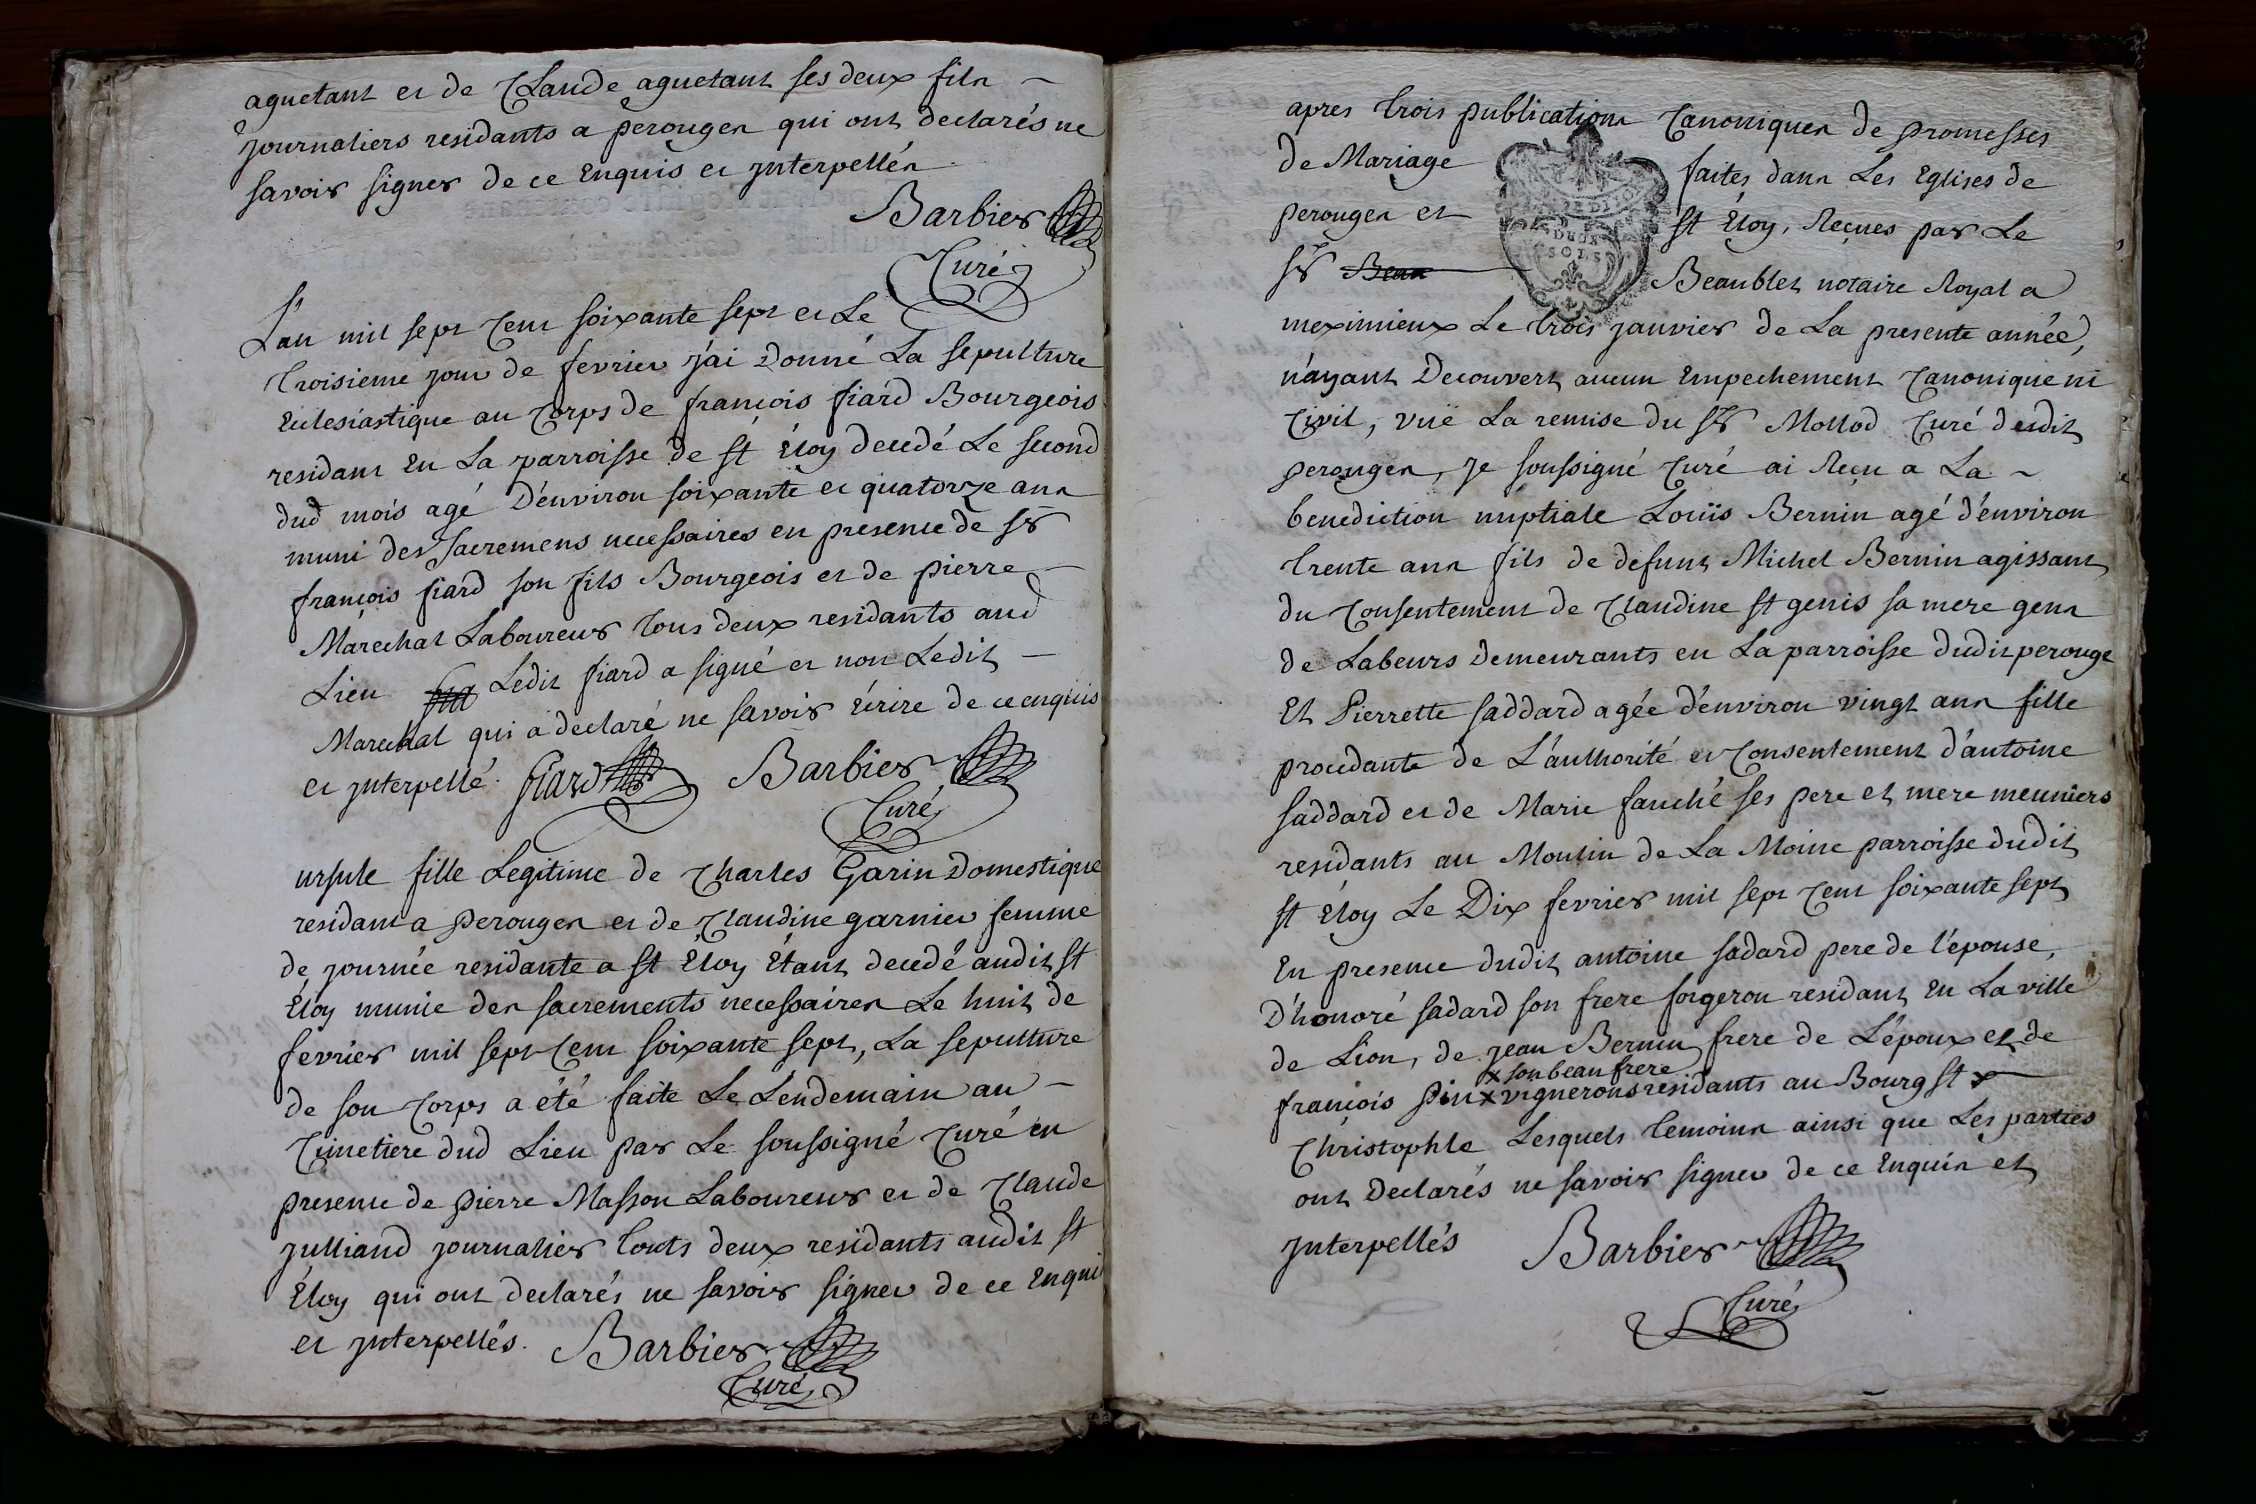 aguetant et de Claude aguetant ses deux fils
journaliers residants a perouges qui ont declarés ne
savoir signer de ce Enquis et jnterpellés
Barbier
Curé
L'an mil sept cent soixante sept et Le
troisieme jour de fevrier j'ai Donné La sepulture
Eclesiastique au corps de françois fiard Bourgeois
residant En La parroisse de st Éloy decedé Le second
dud mois agé D'énviron soixante et quatorze ans
muni des sacremens necessaires en presence de sr
françois fiard son fils Bourgeois et de pierre
Maréchal Laboureur tous deux residants aud
Lieu Ledit fiard a signé et non Ledit
Marechal qui a declaré ne savoir écrire de ce enquis
et jnterpellé. fiard Barbier
Curé
ursule fille Legitime de Charles Garin Domestique
residant a perouges et de Claudine garnier femme
de journée residante a st Éloy Étant decedé audit st
Éloy munie des sacrements necessaires Le huit de
fevrier mil sept Cent soixante sept, La sepulture
de son corps a été faite Le Léndemain au
Cimetiere dud Lieu par Le soussigné Curé en
presence de pierre Masson Laboureur et de Claude
julliand journalier touts deux residants audit st
Éloy qui ont declarés ne savoir signer de ce Enqui
et jnterpellés. Barbier
Curé
apres trois publications Canoniques de promesses
de Mariage faites dans Les Eglises de
perouges et st Éloy, Reçues par Le
sr Beau Beaublet notaire Royal a
meximieux Le trois janvier de La presente année,
n'áyant Decouvert aucun Empechement Canonique ni
Civil, vuë La remise du sr Mollod Curé dudit
perouges, je soussigné Curé ai Reçu a La
benediction nuptiale Loüis Bernin agé d'énviron
trente ans fils de defunt Michel Bernin agissant
du Consentement de Claudine st genis sa mere gens
de Labeurs Demeurants en La parroisse dudit perouge
Et Pierrette saddard agée d'énviron vingt ans fille
procedante de L'áuthorité et Consentement d'ántoine
saddard et de Marie fauché ses pere et mere meuniers
residants au Moulin de La Moine parroisse dudit
st Éloy Le Dix fevrier mil sept Cent soixante sept
En presence dudit antoine sadard pere de l'épouse,
D'honoré sadard son frere forgeron residant En La ville
de Lion, de jean Bernin frere de L'époux et de
x son beau frere
françois Pin x vignerons residants au Bourg st x
Christophle Lesquels temoins ainsi que Les parties
ont Declarés ne savoir signer de ce Enquis et
jnterpellés Barbier
Curé
DEUX
SOLS